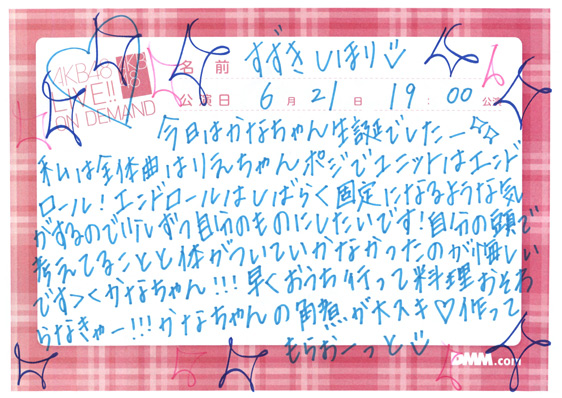 AKB48
LIVE!!
ON DEMAND
AKB
48
名 前 すずきしほり♡
公演日 6月21日 19:00公演
今日はかなちゃん生誕でしたー☆☆
私は全体曲はりえちゃんポジでユニットはエンド
ロール!エンドロールはしばらく固定になるような気
がするので少しずつ自分のものにしたいです!自分の頭で
考えてることと体がついていかなかったのが悔しい
です><かなちゃん!!!早くおうち行って料理おそわ
らなきゃー!!!かなちゃんの角煮が大スキ♡作って
もらおーっと
DMM.com